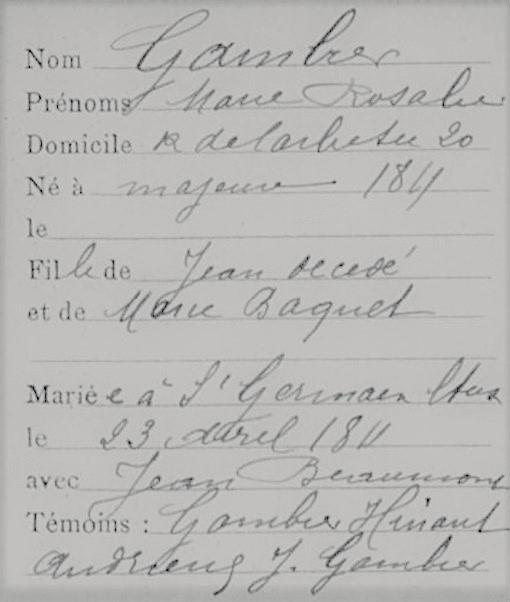 Nom Gambier
Prénoms Marie Rosalie
Domicile R de l'arbre sec 20
Né à majeure 1811
le
Fille de Jean décédé
et de Marie Baquet
Mariée à St Germain l'Aux
le 23 avril 1811
avec Jean Beaumont
Témoins : Gambier Hinaut
J. Gambier